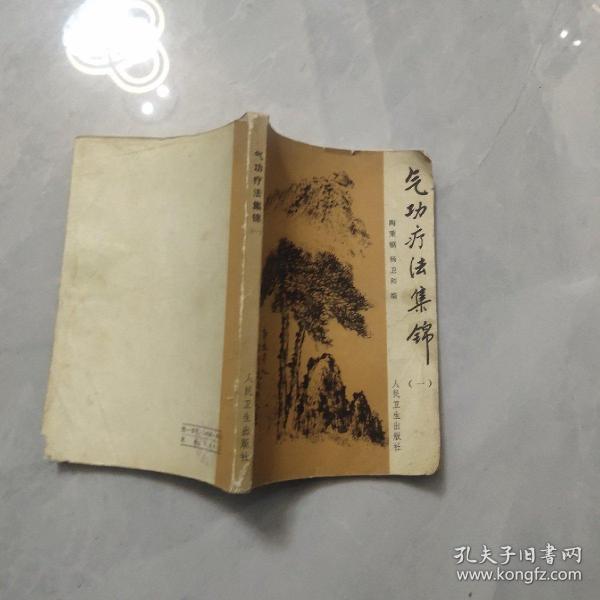 气功疗法集锦
（一）
陶秉福 杨卫和 编
人民卫生出版社
气功疗法集锦
（一）
人民卫生出版社
孔夫子旧书网
www.kongfz.com